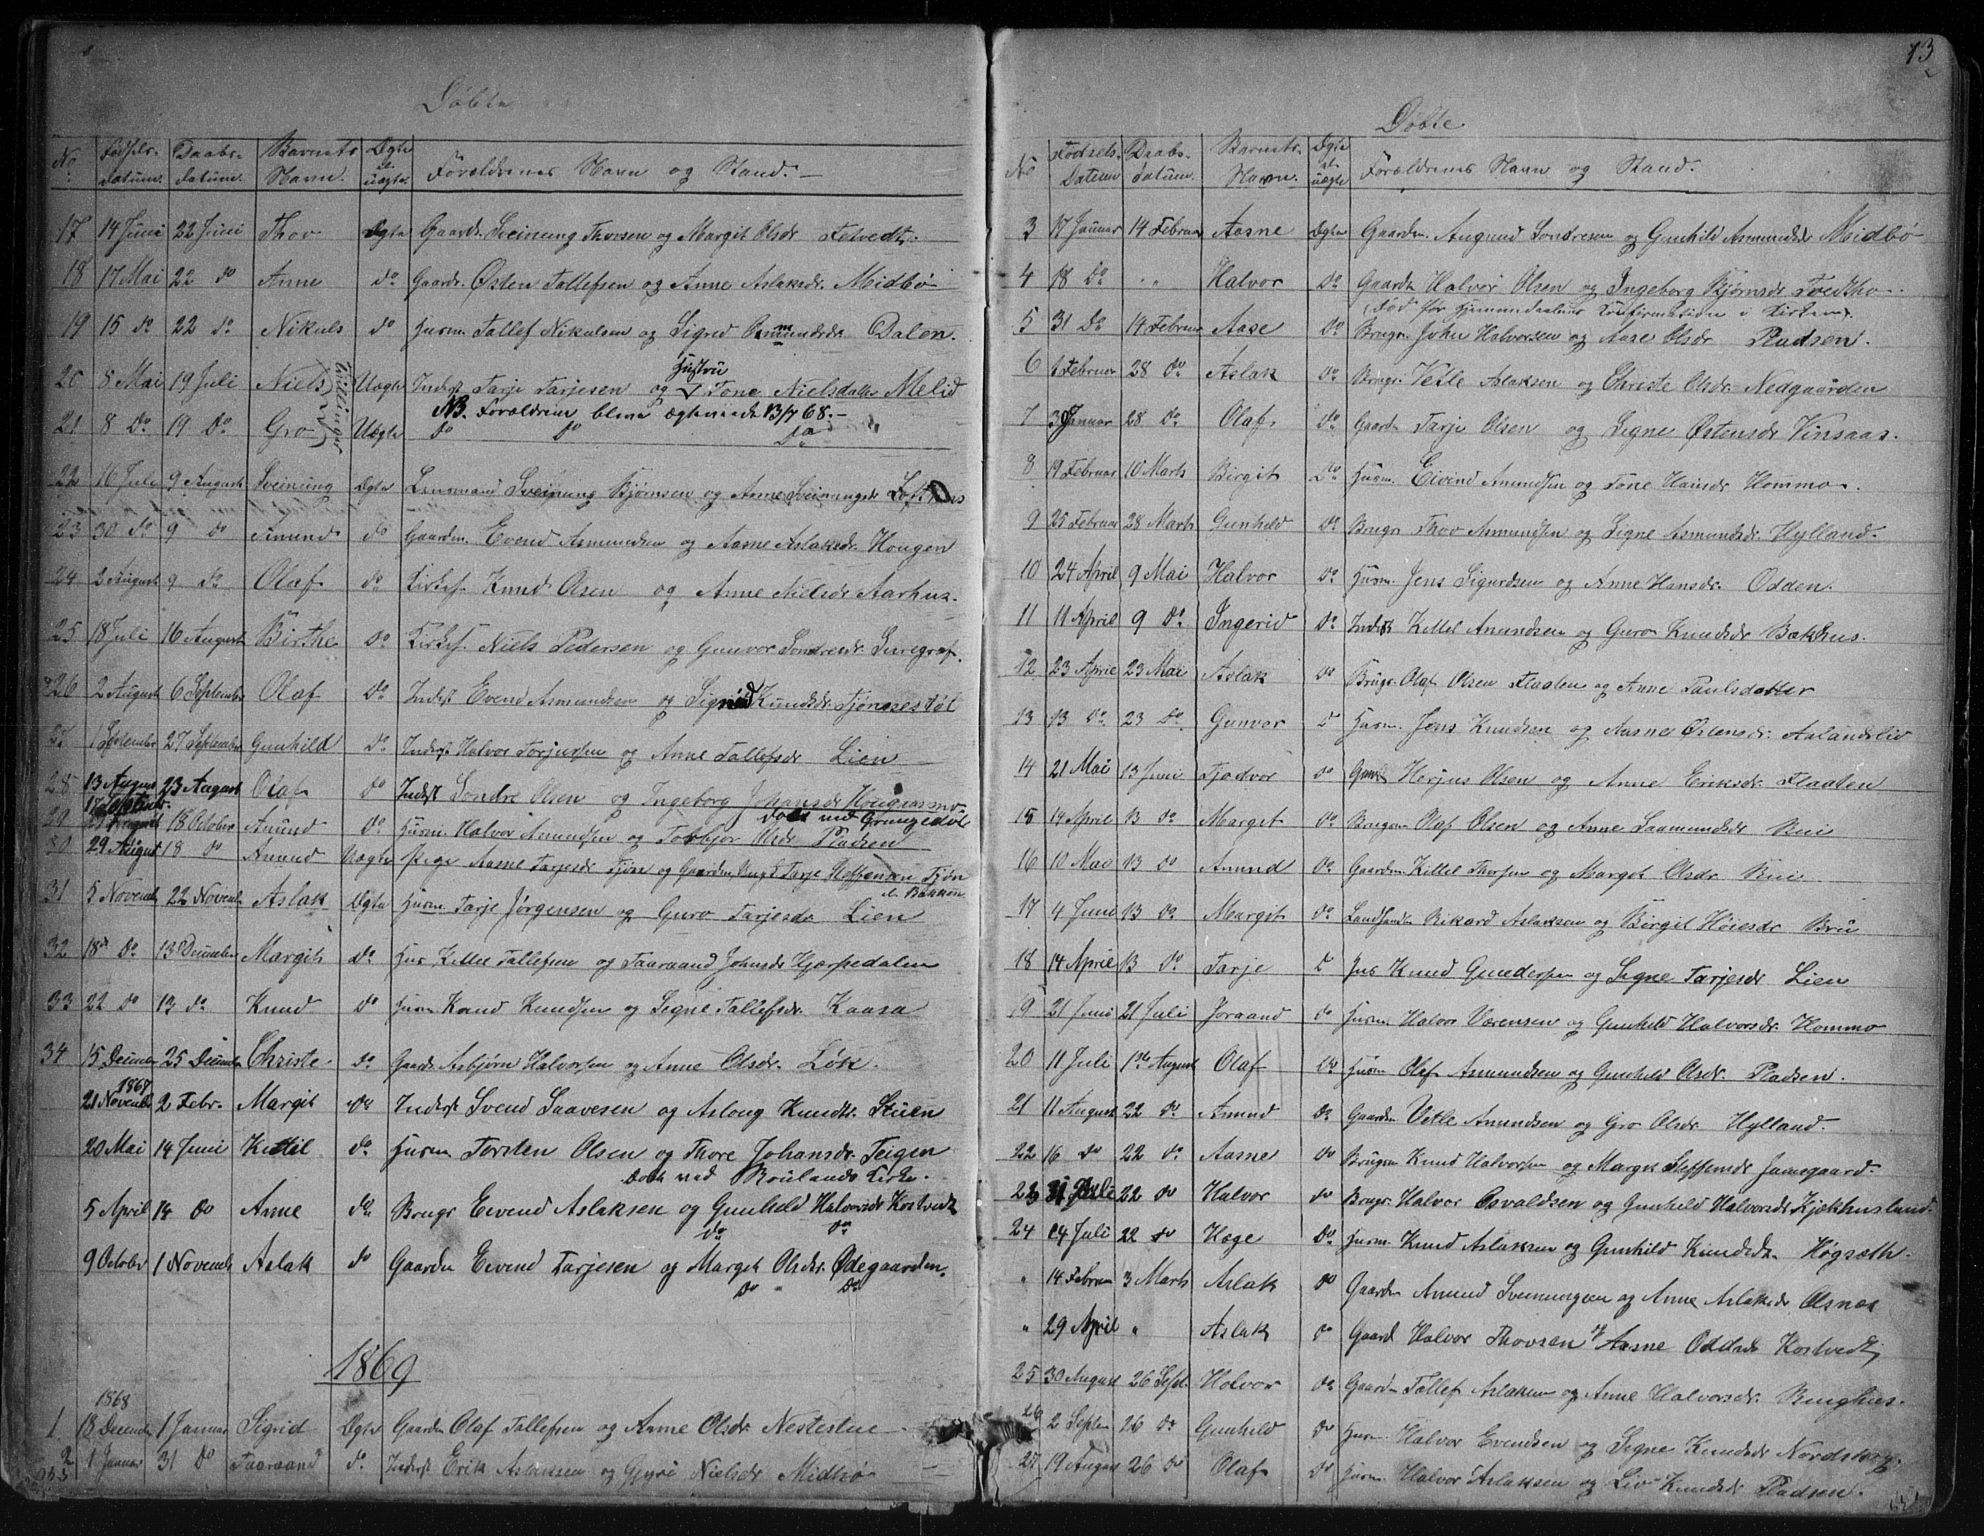 Døbte
No Fødsels- Datum. Daabs- datum. Barnets Navn. Ægte el. uægte Forældrenes Navn og Stand.
17 14 Juni 22 Juni Thov Ægte Gaardr. Sveinung Thovsen og Margit Olsdr
18 17 Mai 22 do Anne do Gaardr. Østen Tallefsen og Anne Aslaksdr. Midbø
19 15 do 22 do Nikuls do Husm. Tallef Nikulsen og Sigred Asmundsdr. Dalen.
Hustru
20 8 Mai 19 Juli Niels Uægte Inderst Tarje Tarjesen og Tone Nielsdatter Melid
Tvillinger
NB. Forældrene bleve ægteviede 13/7 68.
21 8 do 19 do Gro Uægte do do do
22 16 Juli 9 August Sveinung Ægte Lensmand Sveinung Bjørnsen og Anne Sveinungsdr
23 30 do 9 do Amund do Gaardm. Evend Asmundsen og Aasne Aslaksdr. Hougen
24 2 August 9 do Olaf do Kirkes. Knud Olsen og Anne Nielsdr Aarhus.
25 18 Juli 16 August Birthe do Kirkes. Niels Pedersen og Gunvor Sondresdr.
26 2 August 6 September Olaf do Inderst Evend Asmundsen og Signe Knudsdr.
27 1 September 27 September Gunhild do Inderst Halvor Torjussen og Anne Tallefsdr Lien
28 13 August 23 August Olaf do Inderst Sondre Olsen og Ingeborg Johansdr Hougsmo
døbt ved Grungedal
29 18 October Amund do Husm Halvor Amundsen og Torbjør Olsdr Pladsen
30 29 August 18 do Amund Uægte Pige Aasne Tarjesdr Tjøn og Gaardm. Ungk. Tarje Steffensen Tjøn
el. Bakken
31 5 Novemb 22 Novemb Aslak Ægte Husm Tarje Jørgensen og Guro Tarjesdr Lien
32 18 do 13 December Margit do Hus Kittel Tallefsen og Taaraand Johnsdr Kjærpedalen
33 22 do 13 do Knud do Husm Knud Knudsen og Signe Tallefsdr. Kaasa
34 15 December 25 December Christe do Gaardr. Asbjørn Halvorsen og Anne Olsdr. Løk.
1867
21 Novemb 2 Febr. Margit do Inderst Svend Saavesen og Asloug Knudsdr. Stuen
20 Mai 14 Juni Kittil do Husm Torsten Olsen og Thore Johansdr. Teigen
døbt ved Rouland Kirke.
5 April 14 do Anne do Brugr Eivend Aslaksen og Gunhild Halvorsdr Kostvedt
do do
9 October 1 Novemb Aslak do Gaardm Eivend Tarjesen og Margit Olsdr. Ødegaarden.
do " do
1869
1868
1. 18 December 1 Januar Sigrid Ægte Gaardm Olaf Tallefsen og Anne Olsdr. Nestestue
2 1 Januar 31 do Taaraand do Inderst Erik Aslaksen og Gyri Nielsdr Midbø
13
Døbte
No Fødsels- Datum Daabs- datum. Barnets Navn. Ægte el. uægte Forældrenes Navn og Stand.
3 17 Januar 14 Februar Aasne Ægte Gaardm. Augund Sondresen og Gunhild Asmundsdr Midbø
4 18 do " Halvor do Gaardr Halvor Olsen og Ingeborg Bjørnsdr Tvedtho
(død før Hjemmedaabens Confirmation i Kirken).
5 31 do 14 Februar Aase do Brugr. John Halvorsen og Aase Olsdr Pladsen.
6 1 Februar 28 do Aslak do Brugr. Vetle Aslaksen og Christe Olsdr. Nedgaarden
7 30 Januar 28 do Olaf do Gaardm Tarje Olsen og Signe Østensdr Vinsaas.
8 19 Februar 10 Marts Birgit do Husm. Eivind Amundsen og Tone Hansdr Hommo.
9 25 Februar 28 Marts Gunhild do Brugr Thov Asmundsen og Signe Asmundsdr. Hylland.
10 24 April 9 Mai Halvor do Husm. Jens Sigurdsen og Anne Hansdr. Odden.
11 11 April 9 do Ingerid do Inderst Kittel Amundsen og Guro Knudsdr Bakhus.
12 23 April 23 Mai Aslak do Brugr. Olaf Olsen Flaaten og Anne Paulsdatter
13 13 do 23 do Gunvor do Husm. Jens Knudsen og Aasne Østensdr. Aslandslid
14 21 Mai 13 Juni Tjodvor do Gaardr Herjus Olsen og Anne Eriksdr. Flaaten
15 14 April 13 do Margit do Brugm Olaf Olsen og Anne Saamundsdr Rui
16 10 Mai 13 do Amund do Gaardm Kittel Thorsen og Margit Olsdr Rui
17 4 Juni 13 do Margit do Rikard Aslaksen og Birgit Høiesdr Bru
18 14 April 13 do Tarje do Hus Knud Gundersen og Signe Tarjesdr. Lien
19 21 Juni 21 Juli Joraand do Husm Halvor Værensen og Gunhild Halvorsdr. Hommo
20 11 Juli 1ste August Olaf do Husm Olaf Asmundsen og Gunhild Olsdr. Pladsen.
21 11 August 22 do Amund do Gaardm Vetle Amundsen og Gro Olsdr. Hylland.
22 16 do 22 do Aasne do Brugm Knud Halvorsen og Margit Steffensdr Jamsgaard.
23 31 Juli 22 do Halvor do Brugr. Halvor Osvaldsen og Gunhild Halvorsdr Kjækhusland.
24 24 Juli 22 do Hæge do Husm. Knud Aslaksen og Gunhild Knudsdr. Høgsæth.
" 14 Februar 3 Marts Aslak do Gaardm Amund Sveinungsen og Anne Aslaksdr Olsnes
" 29 April " Aslak do Gaardr Halvor Thovsen og Aasne Oddsdr Kostvedt
25 30 August 26 Sept. Halvor do Gaardm Tallef Aslaksen og Anne Halvorsdr. Bunghus.
26 2 Septem 26 do Gunhild do Husm. Halvor Evendsen og Signe Knudsdr Nordskog.
27 19 August 26 do Olaf do Husm. Halvor Aslaksen og Liv Knudsdr Pladsen.